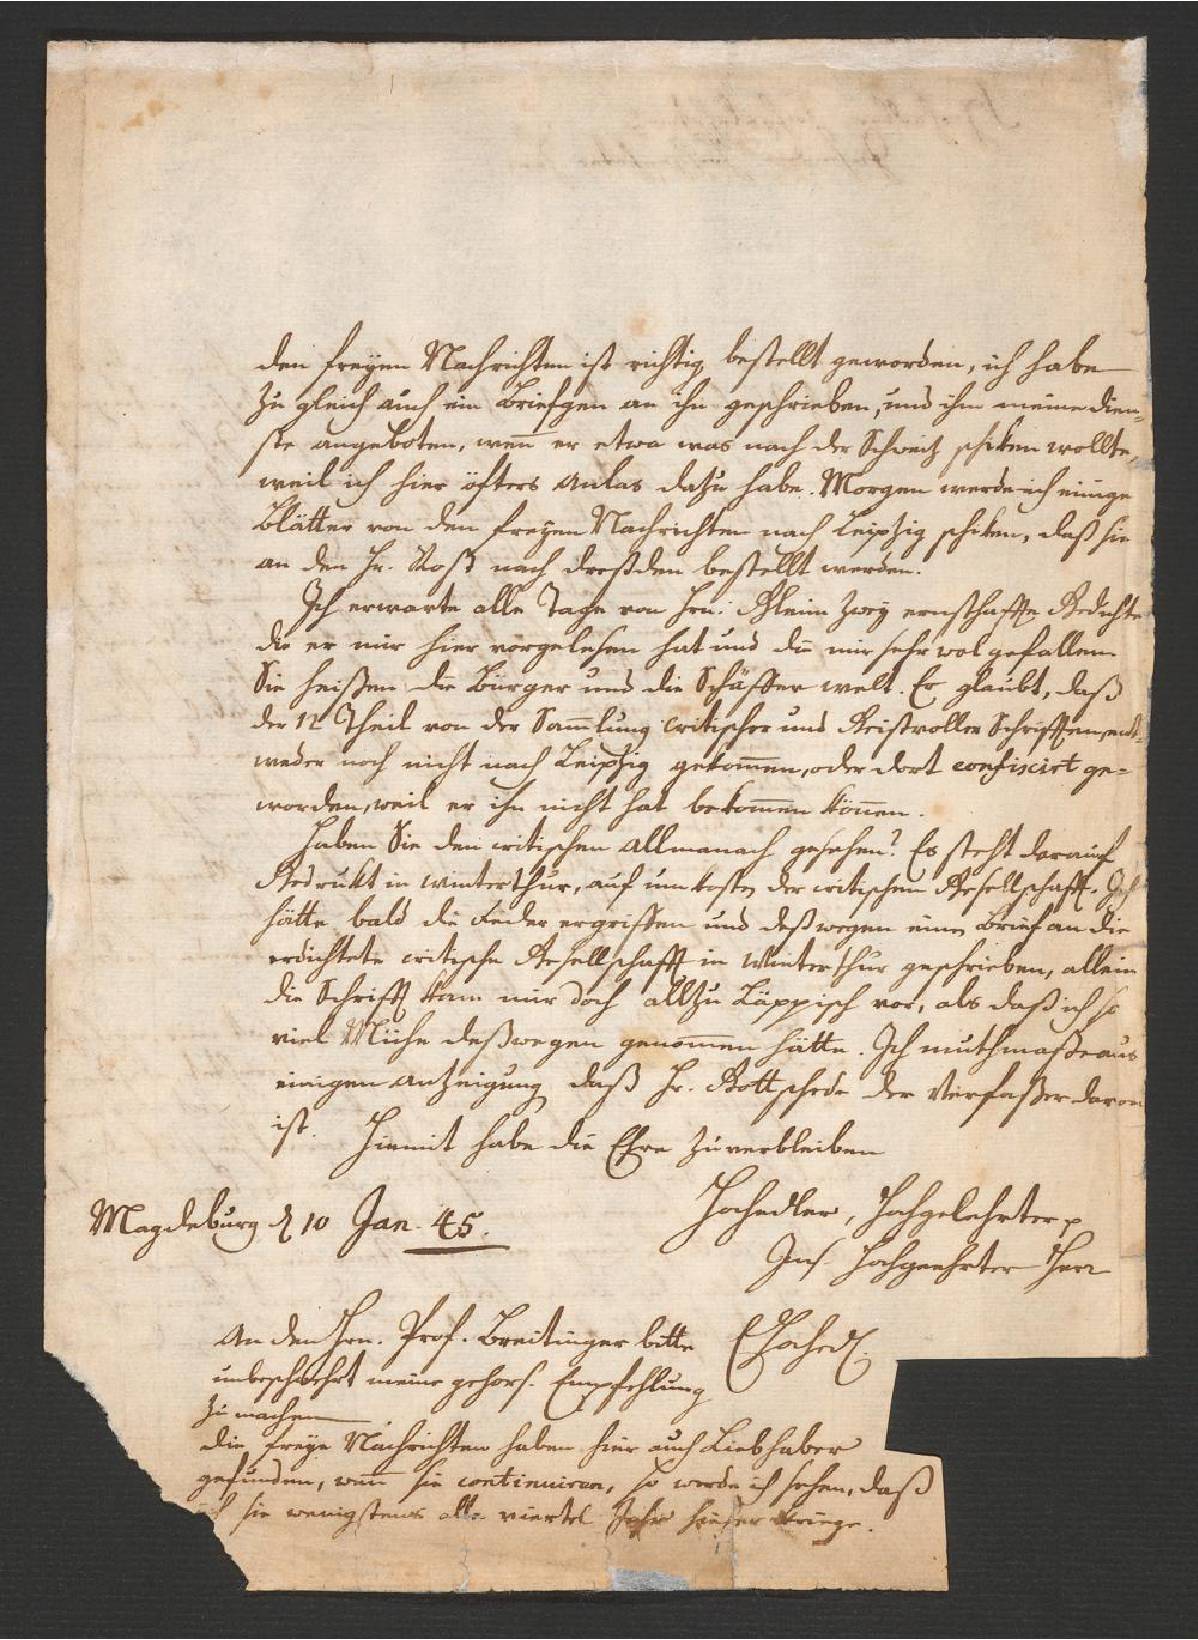 den freyen Nachrichten ist richtig bestellt geworden, ich habe
zu gleich auch ein Briefgen an ihn geschrieben, und ihm meine dien-
ste angeboten, weñ er etwa was nach der Schweitz schiken wollte,
weil ich hier öfters anlas dazu habe. Morgen werde ich einige
Blätter von den freyen Nachrichten nach Leipzig schiken, daß sie
an den Hr. Rost nach Dreßden bestellt werden.
Ich erwarte alle Tage von Hrn: Gleim zwey ernsthaffte Gedichte
die er mir hier vorgelesen hat und die mir sehr wol gefallen.
Sie heißen die Bürger und die Schäffer welt. Er glaubt, daß
der 12 Theil von der Sam̃lung critischer und Geistvoller Schrifften ent-
weder noch nicht nach Leipzig gekom̃en, oder dort confiscirt ge-
worden, weil er ihn nicht hat bekom̃en köñen.
Haben Sie den critischen allmanach gesehen? Es steht darauf
Gedrukt in winterthur, auf unkosten der critischen Gesellschafft. Ich
hätte bald die Feder ergriffen und deßwegen einen Brief an die
erdichtete critische Gesellschafft in Winterthur geschrieben, allein
die Schrifft kam mir doch allzu Läppisch vor, als daß ich so
viel Mühe deßwegen genom̃en hätte. Ich muthmaße aus
einigen anzeigung daß Hr. Gottsched der Verfaßer davon
ist. Hiemit habe die Ehre zu verbleiben
Magdeburg d 10 Jan. 45.
Hochedler, Hochgelehrter
Ins. Hochgeehrter Herr
An den Hrn. Prof. Breitinger bitte
E Hoched.
unbeschwehrt meine gehors. Empfehlung
zu machen
die freye Nachrichten haben hier auch Liebhaber
gefunden, wañ sie continuiren, so werde ich sehen, daß
ich sie wenigstens alle viertel Jahr hieher kriege.